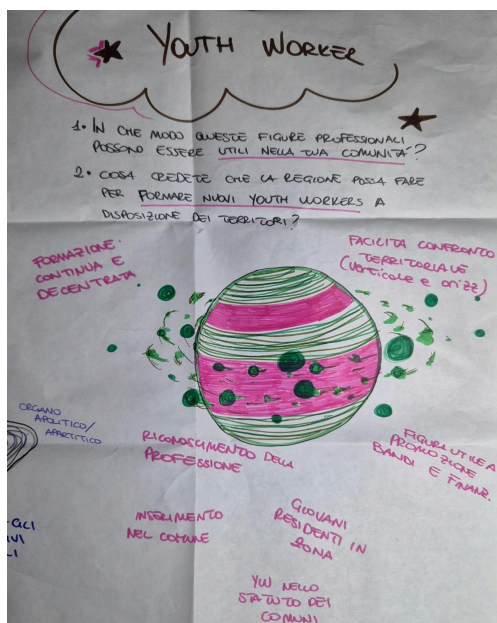 YOUTH WORKER
1. IN CHE MODO QUESTE FIGURE PROFESSIONALI
POSSONO ESSERE UTILI NELLA TUA COMUNITÀ?
2. COSA CREDETE CHE LA REGIONE POSSA FARE
PER FORMARE NUOVI YOUTH WORKERS A
DISPOSIZIONE DEI TERRITORI?
FORMAZIONE
CONTINUA E
DECENTRATA
FACILITA CONFRONTO
TERRITORIALE
(verticale e orizz)
ORGANO
APOLITICO/
APARTITICO
RICONOSCIMENTO DELLA
PROFESSIONE
FIGURE UTILE A
PROMOZIONE
BANDI E FINANZ.
INSERIMENTO
NEL COMUNE
GIOVANI
RESIDENTI IN
ZONA
YW NELLO
STATUTO DEI
COMUNI